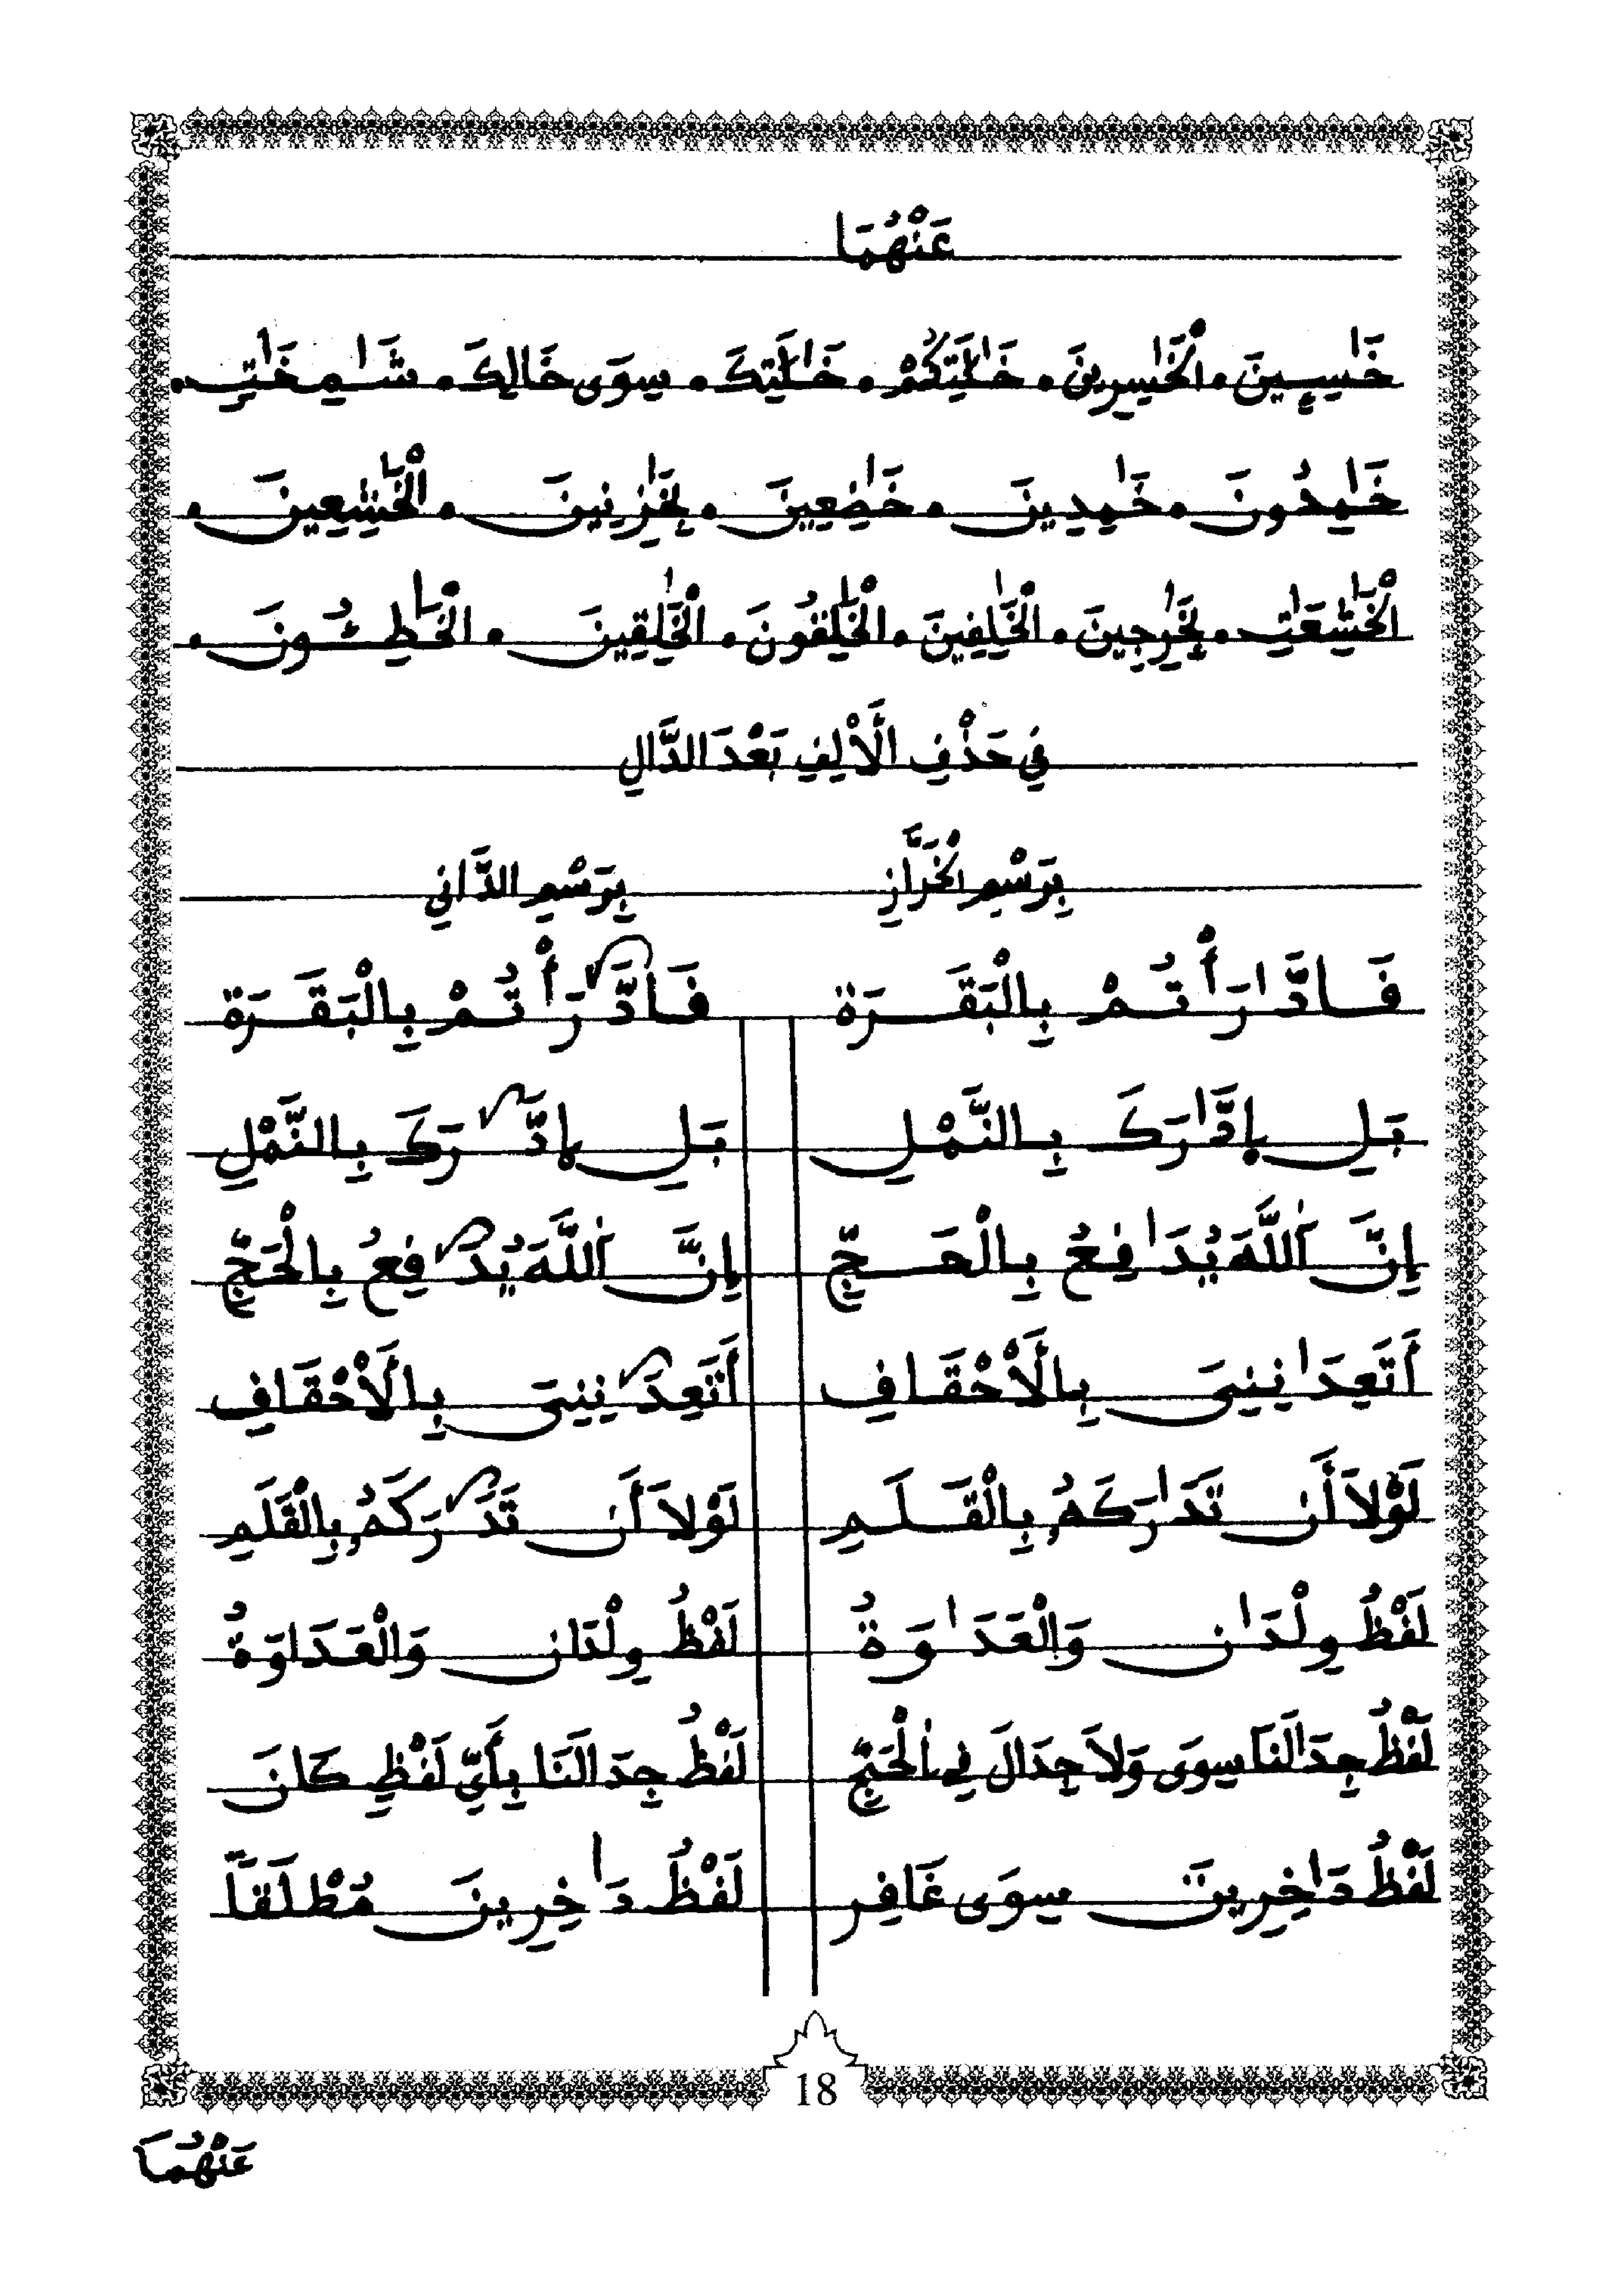 عَنْهُمَا
خَٰسِـِٕينَ . الْخَٰسِرِينَ . خَٰلَٰتِكُمْ . خَٰلَٰتِكَ . سِوَى خَالِكَ . شَٰمِخَٰتٍ .
خَٰمِدُونَ . خَٰمِدِينَ . خَٰضِعِينَ . بِخَٰزِنِينَ . الْخَٰشِعِينَ .
الْخَٰشِعَٰتِ . بِخَٰرِجِينَ . الْخَٰلِفِينَ . الْخَٰلِفُونَ . الْخَٰلِقِينَ . الْخَٰطِـُٔونَ .
فِي حَذْفِ الْأَلِفِ بَعْدَ الدَّالِ
بِرَسْمِ الْخَرَّازِ بِرَسْمِ الدَّانِي
فَادَّٰرَأْتُمْ بِالْبَقَرَة فَادَّرَأْتُمْ بِالْبَقَرَة
بَلِ اِدَّٰرَكَ بِالنَّمْلِ بَلِ اِدَّرَكَ بِالنَّمْلِ
إِنَّ اَللَّهَ يُدَٰفِعُ بِالْحَجِّ إِنَّ اَللَّهَ يُدَفِعُ بِالْحَجِّ
أَتَعِدَٰنِنِيَ بِالْأَحْقَافِ أَتَعِدَنِنِيَ بِالْأَحْقَافِ
لَوْلَا أَن تَدَٰرَكَهُۥ بِالْقَلَمِ لَوْلَا أَن تَدَرَكَهُۥ بِالْقَلَمِ
لَفْظُ وِلْدَٰن وَالْعَدَٰوَةُ لَفْظُ وِلْدَان وَالْعَدَاوَةُ
لَفْظُ جِدَٰلَنَا سِوَى وَلَا جِدَالَ فِي اِلْحَجِّ لَفْظُ جِدَالَنَا بِأَيِّ لَفْظٍ كَانَ
لَفْظُ دَٰخِرِينَ سِوَى غَافِرِ لَفْظُ دَاخِرِينَ مُطْلَقاً
18
عَنْهُمَا